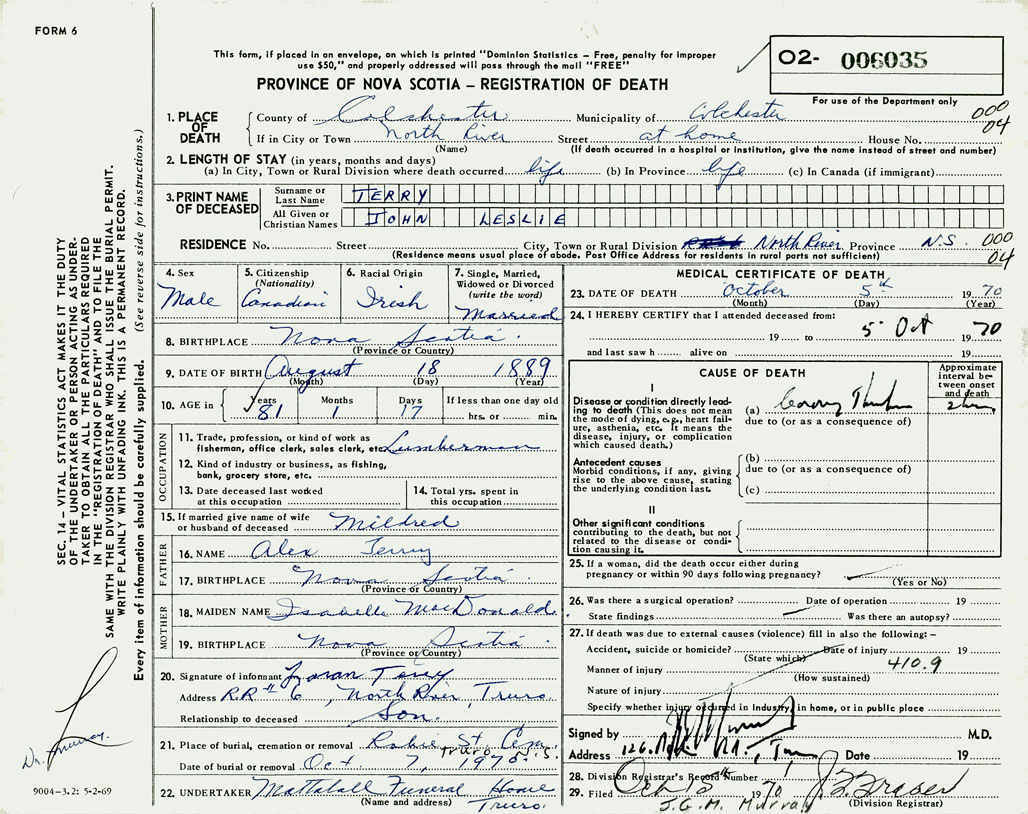 FORM 6
This form, if placed in an envelope, on which is printed "Dominion Statistics – Free, penalty for improper
use $50," and properly addressed will pass through the mail "FREE"
PROVINCE OF NOVA SCOTIA – REGISTRATION OF DEATH
O2- 006035
For use of the Department only
000
04
1. PLACE OF DEATH
County of Colchester Municipality of Colchester
If in City or Town North River Street at home House No.
(Name) (If death occurred in a hospital or institution, give the name instead of street and number)
2. LENGTH OF STAY (in years, months and days)
(a) In City, Town or Rural Division where death occurred life (b) In Province life (c) In Canada (if immigrant)
3. PRINT NAME OF DECEASED
Surname or Last Name TERRY
All Given or Christian Names JOHN LESLIE
RESIDENCE No. Street City, Town or Rural Division North River Province N.S. 000
(Residence means usual place of abode. Post Office Address for residents in rural parts not sufficient) 04
4. Sex Male
5. Citizenship (Nationality) Canadian
6. Racial Origin Irish
7. Single, Married, Widowed or Divorced (write the word) Married
8. BIRTHPLACE Nova Scotia
(Province or Country)
9. DATE OF BIRTH August 18 1889
(Month) (Day) (Year)
10. AGE in Years 81 Months 1 Days 17 If less than one day old
hrs. or min.
OCCUPATION
11. Trade, profession, or kind of work as
fisherman, office clerk, sales clerk, etc. Lumberman
12. Kind of industry or business, as fishing,
bank, grocery store, etc.
13. Date deceased last worked
at this occupation
14. Total yrs. spent in
this occupation
15. If married give name of wife
or husband of deceased Mildred
FATHER
16. NAME Alex Terry
17. BIRTHPLACE Nova Scotia
(Province or Country)
MOTHER
18. MAIDEN NAME Isabelle MacDonald
19. BIRTHPLACE Nova Scotia
(Province or Country)
20. Signature of informant Terry
Address R.R # 6, North River, Truro
Relationship to deceased Son.
21. Place of burial, cremation or removal Robie St Cem.
Truro N.S.
Date of burial or removal Oct 7, 1970
22. UNDERTAKER Mattatall Funeral Home
(Name and address) Truro.
MEDICAL CERTIFICATE OF DEATH
23. DATE OF DEATH October 5th 1970
(Month) (Day) (Year)
24. I HEREBY CERTIFY that I attended deceased from:
19 to 5 Oct 1970
and last saw h alive on 19
CAUSE OF DEATH
Approximate interval between onset and death
I
Disease or condition directly lead-
ing to death (This does not mean
the mode of dying, e.g., heart fail-
ure, asthenia, etc. It means the
disease, injury, or complication
which caused death.)
(a)
due to (or as a consequence of)
Antecedent causes
Morbid conditions, if any, giving
rise to the above cause, stating
the underlying condition last.
(b)
due to (or as a consequence of)
(c)
II
Other significant conditions
contributing to the death, but not
related to the disease or condi-
tion causing it.
25. If a woman, did the death occur either during
pregnancy or within 90 days following pregnancy?
(Yes or No)
26. Was there a surgical operation? Date of operation 19
State findings Was there an autopsy?
27. If death was due to external causes (violence) fill in also the following: –
Accident, suicide or homicide? Date of injury 19
(State which)
Manner of injury 410.9
(How sustained)
Nature of injury
Specify whether injury occurred in industry, in home, or in public place
Signed by M.D.
Address 126 Date 19
28. Division Registrar's Record Number 1
29. Filed Oct 15 1970
J.G.M. Murray
(Division Registrar)
SEC. 14 – VITAL STATISTICS ACT MAKES IT THE DUTY
OF THE UNDERTAKER OR PERSON ACTING AS UNDER-
TAKER TO OBTAIN ALL THE PARTICULARS REQUIRED
IN THE "REGISTRATION OF DEATH" AND TO FILE THE
SAME WITH THE DIVISION REGISTRAR WHO SHALL ISSUE THE BURIAL PERMIT.
WRITE PLAINLY WITH UNFADING INK. THIS IS A PERMANENT RECORD.
Every item of information should be carefully supplied. (See reverse side for instructions.)
Dr. Murray
9004–3.2: 5-2-69